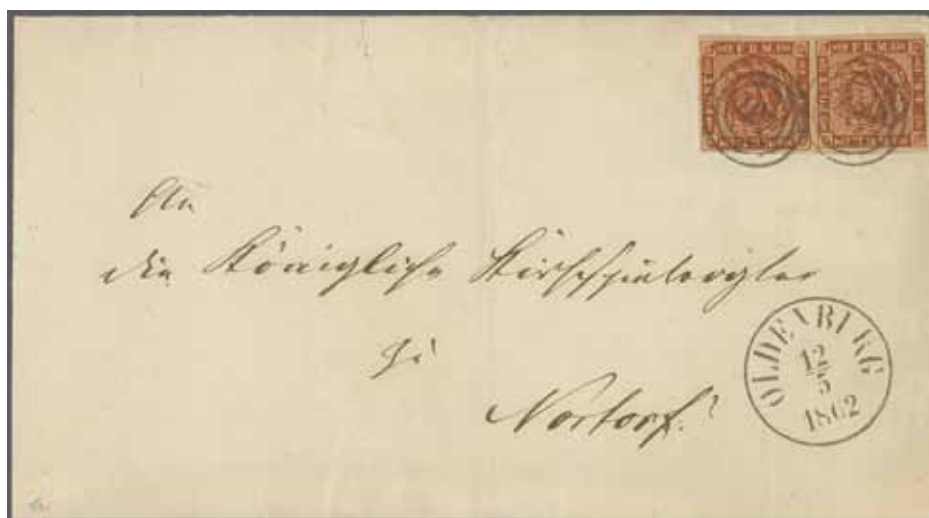 FRM
FRM
An
die Königliche Kirchspielvogtei
zu
Nortorf.
OLDENBURG
12
5
1862